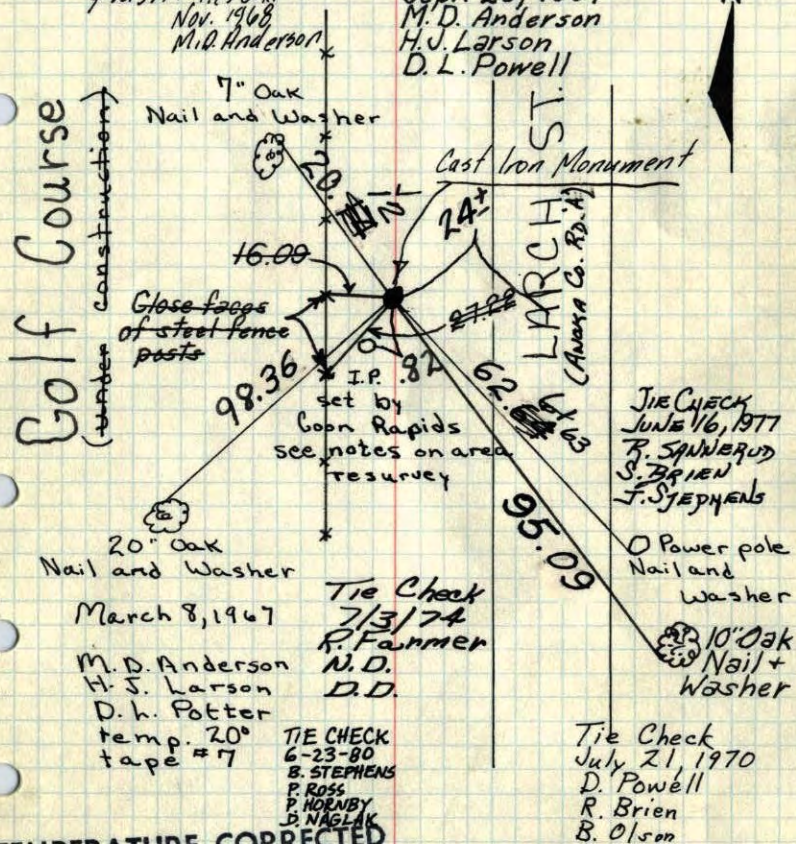 Nov. 1968
M.D. Anderson
M.D. Anderson
H.J. Larson
D.L. Powell
7" Oak
Nail and Washer
Golf Course
(under construction)
20.
12
Cast Iron Monument
24±
LARCH ST.
(Anoka Co. Rd. 'A')
16.00
27.22
Close faces
of steel fence
posts
98.36
I.P. .82
set by
Coon Rapids
see notes on area
resurvey
62.64
63
95.09
TIE CHECK
JUNE 16, 1977
R. SANNERUD
S. BRIEN
J. STEPHENS
20" Oak
Nail and Washer
Power pole
Nail and
Washer
10" Oak
Nail +
Washer
March 8, 1967
M.D. Anderson
H.J. Larson
D.L. Potter
temp. 20°
tape #7
Tie Check
7/3/74
R. Farmer
N.D.
D.D.
TIE CHECK
6-23-80
B. STEPHENS
P. ROSS
P. HORNBY
D. NAGLAK
Tie Check
July 21, 1970
D. Powell
R. Brien
B. Olson
TEMPERATURE CORRECTED